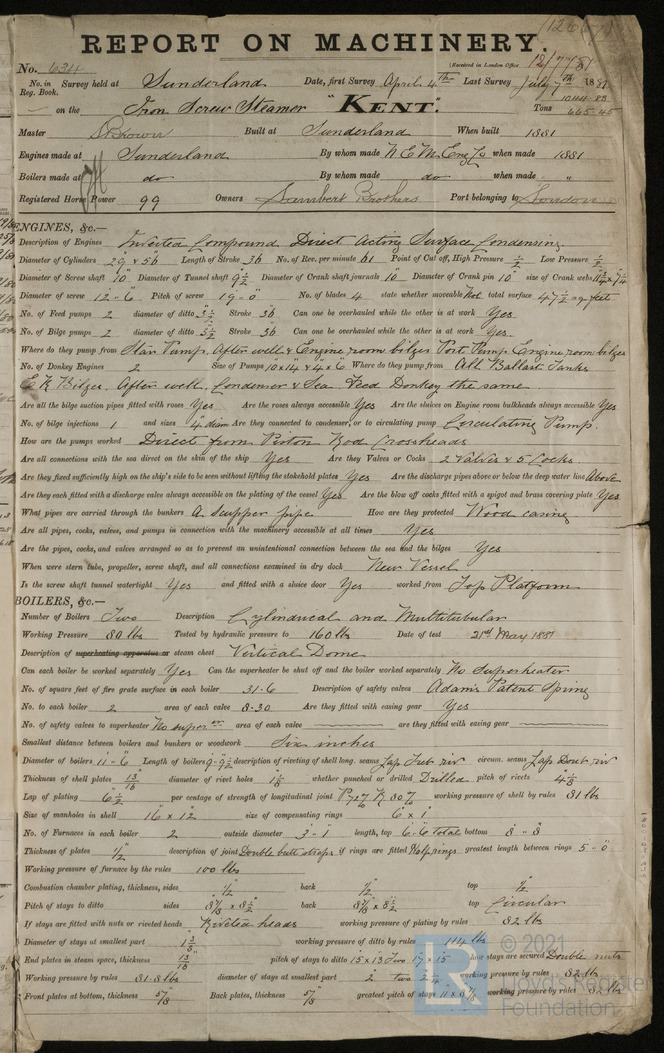 (12667)
REPORT ON MACHINERY.
No. 634 (Received in London Office 12/7/81
No. in Reg. Book. Survey held at Sunderland Date, first Survey April 4th Last Survey July 7th 1881
on the Iron Screw Steamer "KENT." Tons 1044.83 665.45
Master Brown Built at Sunderland When built 1881
Engines made at Sunderland By whom made N E M Eng Co when made 1881
Boilers made at do By whom made do when made "
Registered Horse Power 99 Owners Lambert Brothers Port belonging to London
ENGINES, &c.—
Description of Engines Inverted Compound Direct Acting Surface Condensing
Diameter of Cylinders 29 & 56 Length of Stroke 36 No. of Rev. per minute 61 Point of Cut off, High Pressure 1/2 Low Pressure 1/2
Diameter of Screw shaft 10" Diameter of Tunnel shaft 9 1/2 Diameter of Crank shaft journals 10 Diameter of Crank pin 10" size of Crank webs
Diameter of screw 12-6 Pitch of screw 19-0 No. of blades 4 state whether moveable Not total surface 47 1/2 sq feet
No. of Feed pumps 2 diameter of ditto 3 1/2 Stroke 36 Can one be overhauled while the other is at work Yes
No. of Bilge pumps 2 diameter of ditto 3 1/2 Stroke 36 Can one be overhauled while the other is at work Yes
Where do they pump from Star Pump. After well & Engine room bilges Port Pump. Engine room bilges
No. of Donkey Engines 2 Size of Pumps 10 x 14 & 4 x 6 Where do they pump from All Ballast Tanks
E R Bilges. After well. Condenser & Sea Feed Donkey the same
Are all the bilge suction pipes fitted with roses Yes Are the roses always accessible Yes Are the sluices on Engine room bulkheads always accessible Yes
No. of bilge injections 1 and sizes 4" diam Are they connected to condenser, or to circulating pump Circulating Pump.
How are the pumps worked Direct from Piston Rod Crossheads
Are all connections with the sea direct on the skin of the ship Yes Are they Valves or Cocks 2 Valves & 5 Cocks
Are they fixed sufficiently high on the ship's side to be seen without lifting the stokehold plates Yes Are the discharge pipes above or below the deep water line Above
Are they each fitted with a discharge valve always accessible on the plating of the vessel Yes Are the blow off cocks fitted with a spigot and brass covering plate Yes
What pipes are carried through the bunkers A scupper pipe How are they protected Wood casing
Are all pipes, cocks, valves, and pumps in connection with the machinery accessible at all times Yes
Are the pipes, cocks, and valves arranged so as to prevent an unintentional connection between the sea and the bilges Yes
When were stern tube, propeller, screw shaft, and all connections examined in dry dock New Vessel
Is the screw shaft tunnel watertight Yes and fitted with a sluice door Yes worked from Top Platform
BOILERS, &c.—
Number of Boilers Two Description Cylindrical and Multitubular
Working Pressure 80 lbs Tested by hydraulic pressure to 160 lbs Date of test 21st May 1881
Description of superheating apparatus or steam chest Vertical Dome
Can each boiler be worked separately Yes Can the superheater be shut off and the boiler worked separately No superheater
No. of square feet of fire grate surface in each boiler 31.6 Description of safety valves Adams Patent Spring
No. to each boiler 2 area of each valve 8.30 Are they fitted with easing gear Yes
No. of safety valves to superheater No super er area of each valve are they fitted with easing gear
Smallest distance between boilers and bunkers or woodwork Six inches
Diameter of boilers 11-6 Length of boilers 9-9 1/2 description of riveting of shell long. seams Lap Treb riv circum. seams Lap Doub riv
Thickness of shell plates 13/16 diameter of rivet holes 1 1/8 whether punched or drilled Drilled pitch of rivets 4 1/8
Lap of plating 6 1/2 per centage of strength of longitudinal joint working pressure of shell by rules 81 lbs
Size of manholes in shell 16 x 12 size of compensating rings 6 x 1"
No. of Furnaces in each boiler 2 outside diameter 3-1 length, top 6-6 total bottom 8-8
Thickness of plates 1/2 description of joint Double butt straps if rings are fitted Half rings greatest length between rings 5-0
Working pressure of furnace by the rules 100 lbs
Combustion chamber plating, thickness, sides 1/2 back 1/2 top 1/2
Pitch of stays to ditto sides 8 7/8 x 8 1/2 back 8 7/8 x 8 1/2 top Circular
If stays are fitted with nuts or riveted heads Riveted heads working pressure of plating by rules 82 lbs
Diameter of stays at smallest part 1 3/8 working pressure of ditto by rules 114 lbs
End plates in steam space, thickness 13/16 pitch of stays to ditto 15 x 13 Two 17 x 15 how stays are secured Double nuts
Working pressure by rules 81.8 lbs diameter of stays at smallest part 2 two 2 1/4 working pressure by rules 82 lbs
Front plates at bottom, thickness 5/8 Back plates, thickness 5/8 greatest pitch of stays 11 x 8 7/8 working pressure by rules 82 lbs
© 2021
LR Lloyd's Register
Foundation